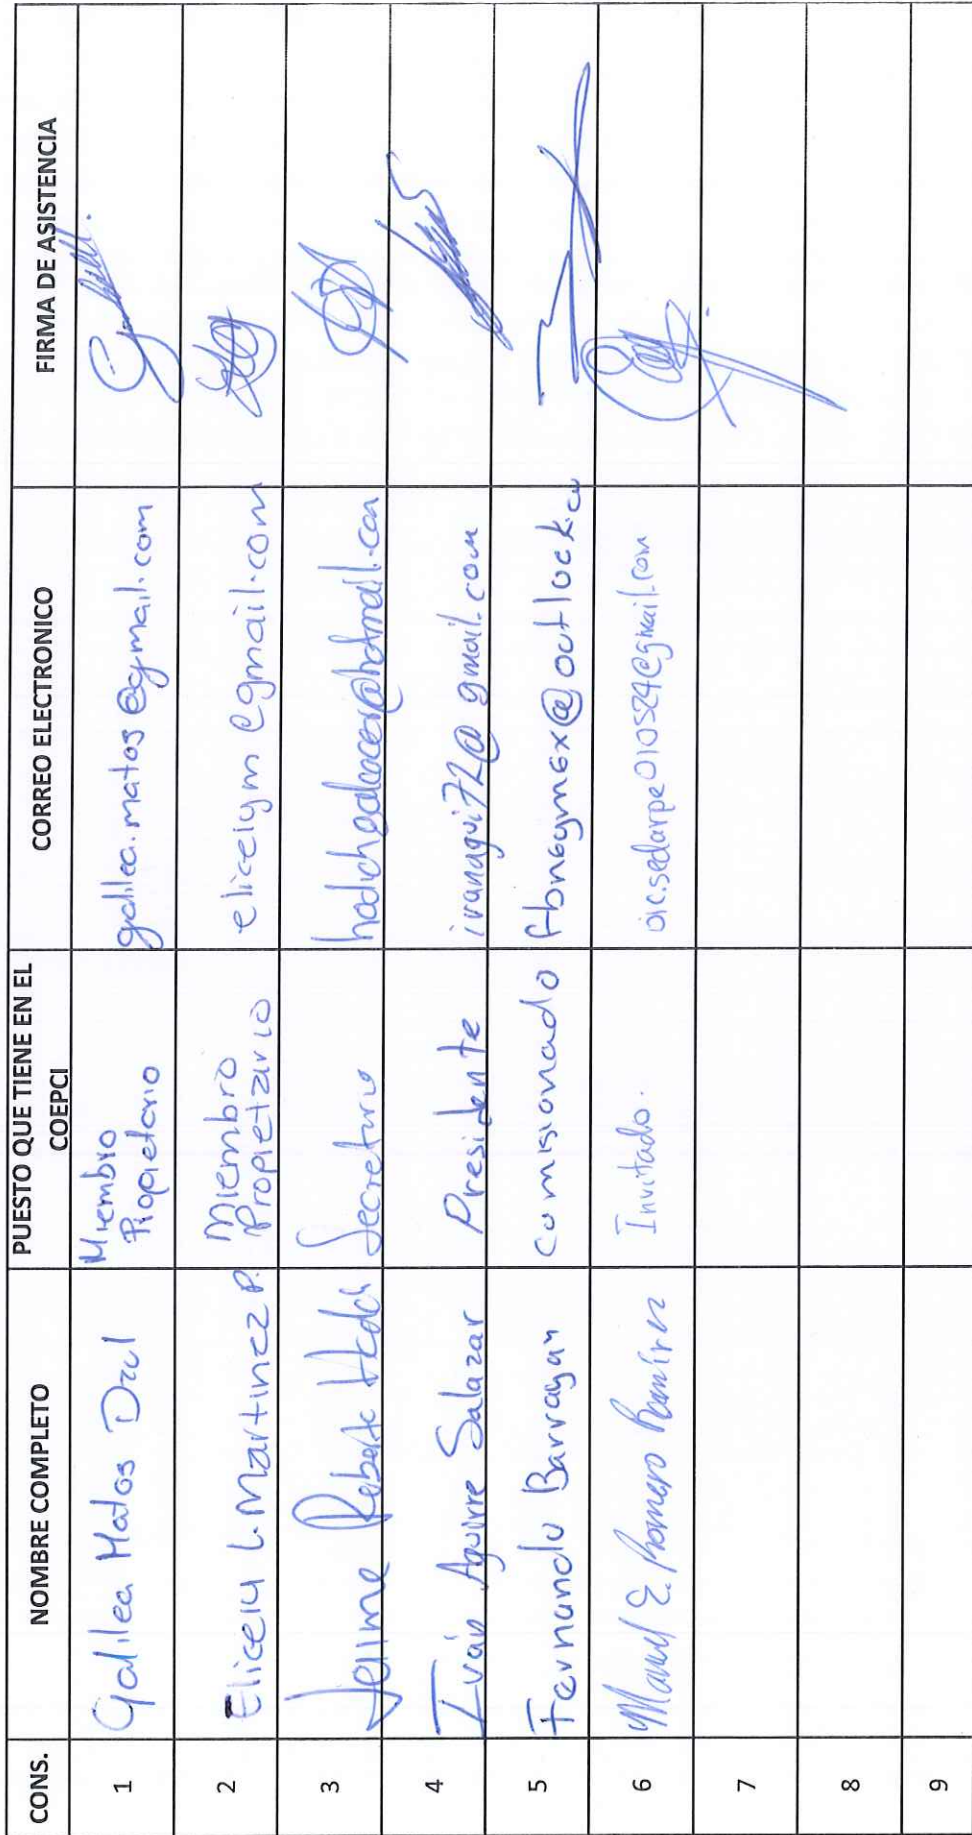 CONS. NOMBRE COMPLETO PUESTO QUE TIENE EN EL COEPCI CORREO ELECTRONICO FIRMA DE ASISTENCIA
1 Galilea Matos Dzul Miembro Propietario galilea.matos@gmail.com
2 Elicely L. Martinez P. Miembro Propietario elicelym@gmail.com
3 Roberto Secretario
4 Iván Aguirre Salazar Presidente ivanagui72@gmail.com
5 Fernando Barragan Comisionado
6 Manuel E. Romero Ramírez Invitado. oic.sedarpe010524@gmail.com
7
8
9